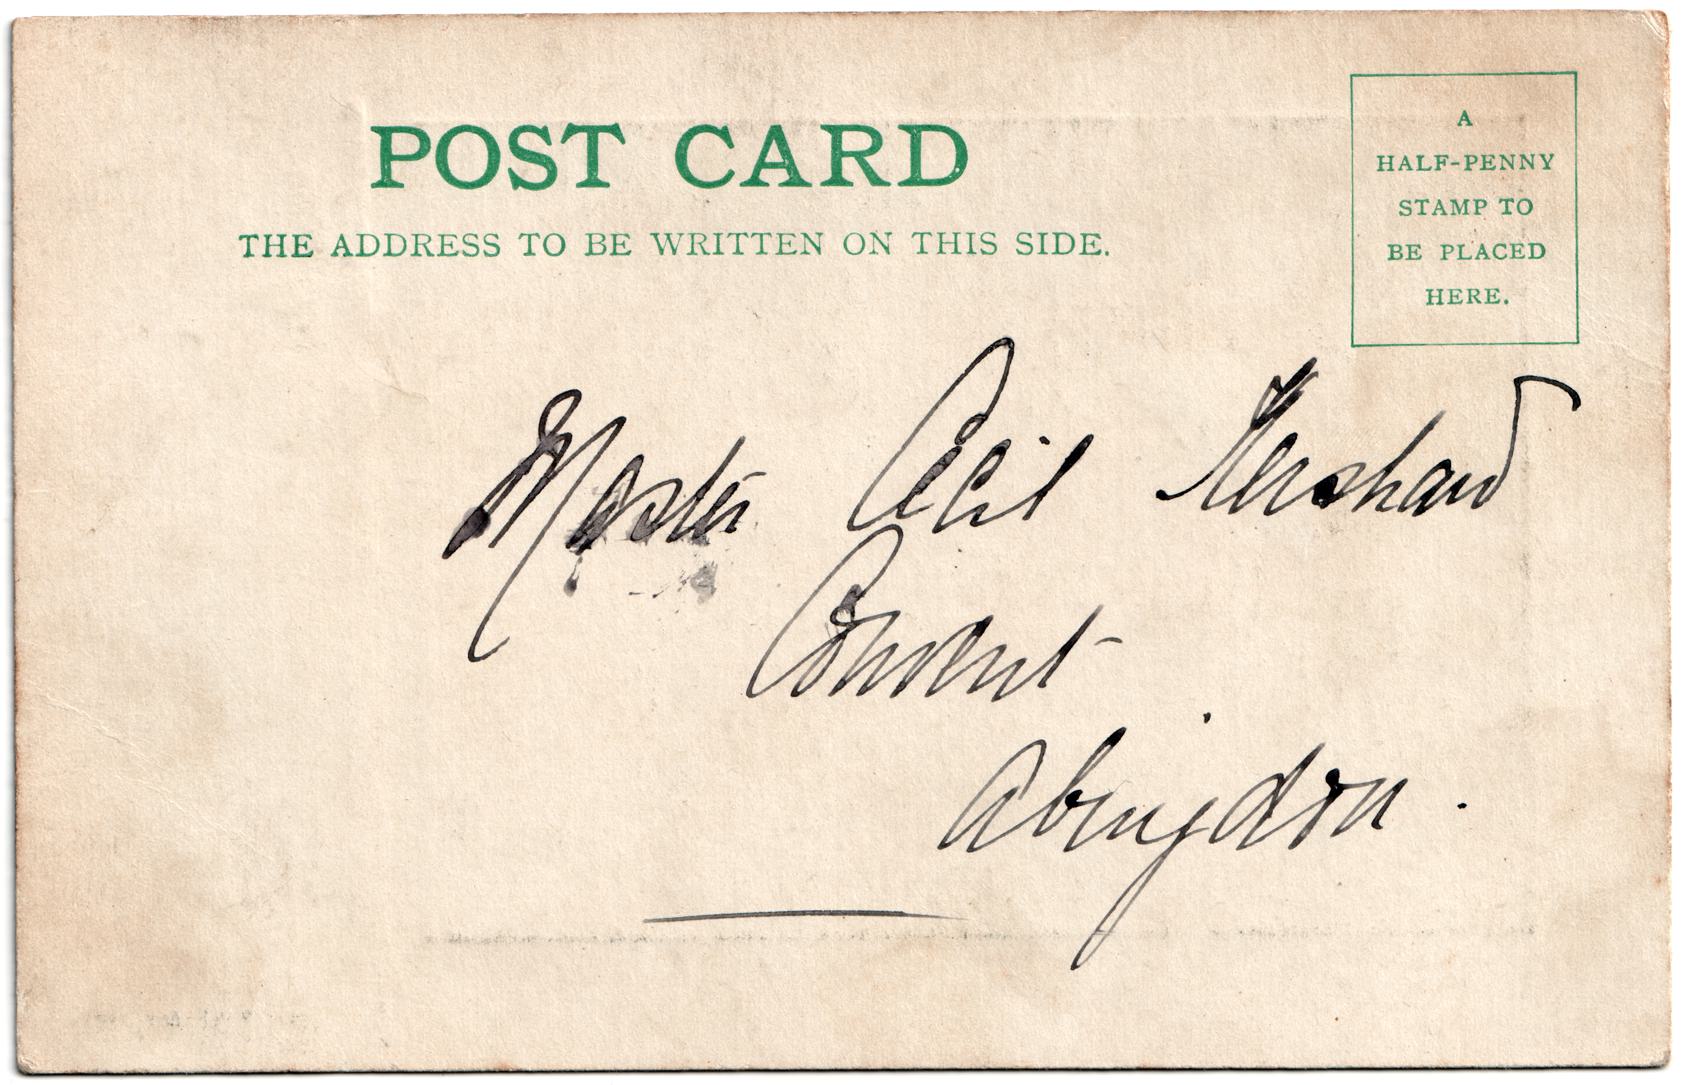 POST CARD
THE ADDRESS TO BE WRITTEN ON THIS SIDE.
A
HALF-PENNY
STAMP TO
BE PLACED
HERE.
Master Cecil Kershaw
Convent
Abingdon.